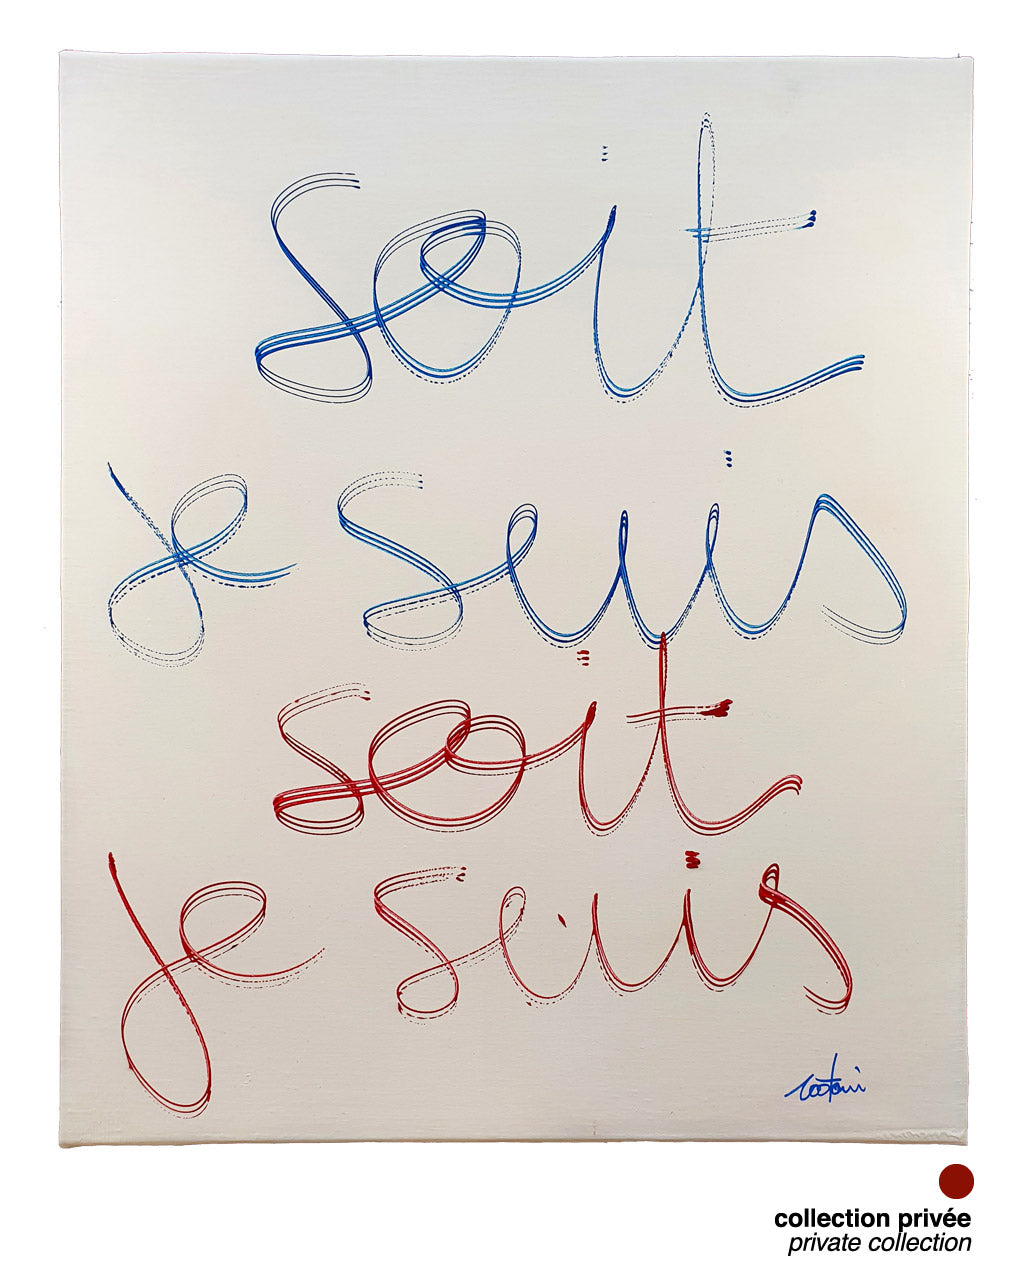 soit
je suis
soit
je suis
collection privée
private collection